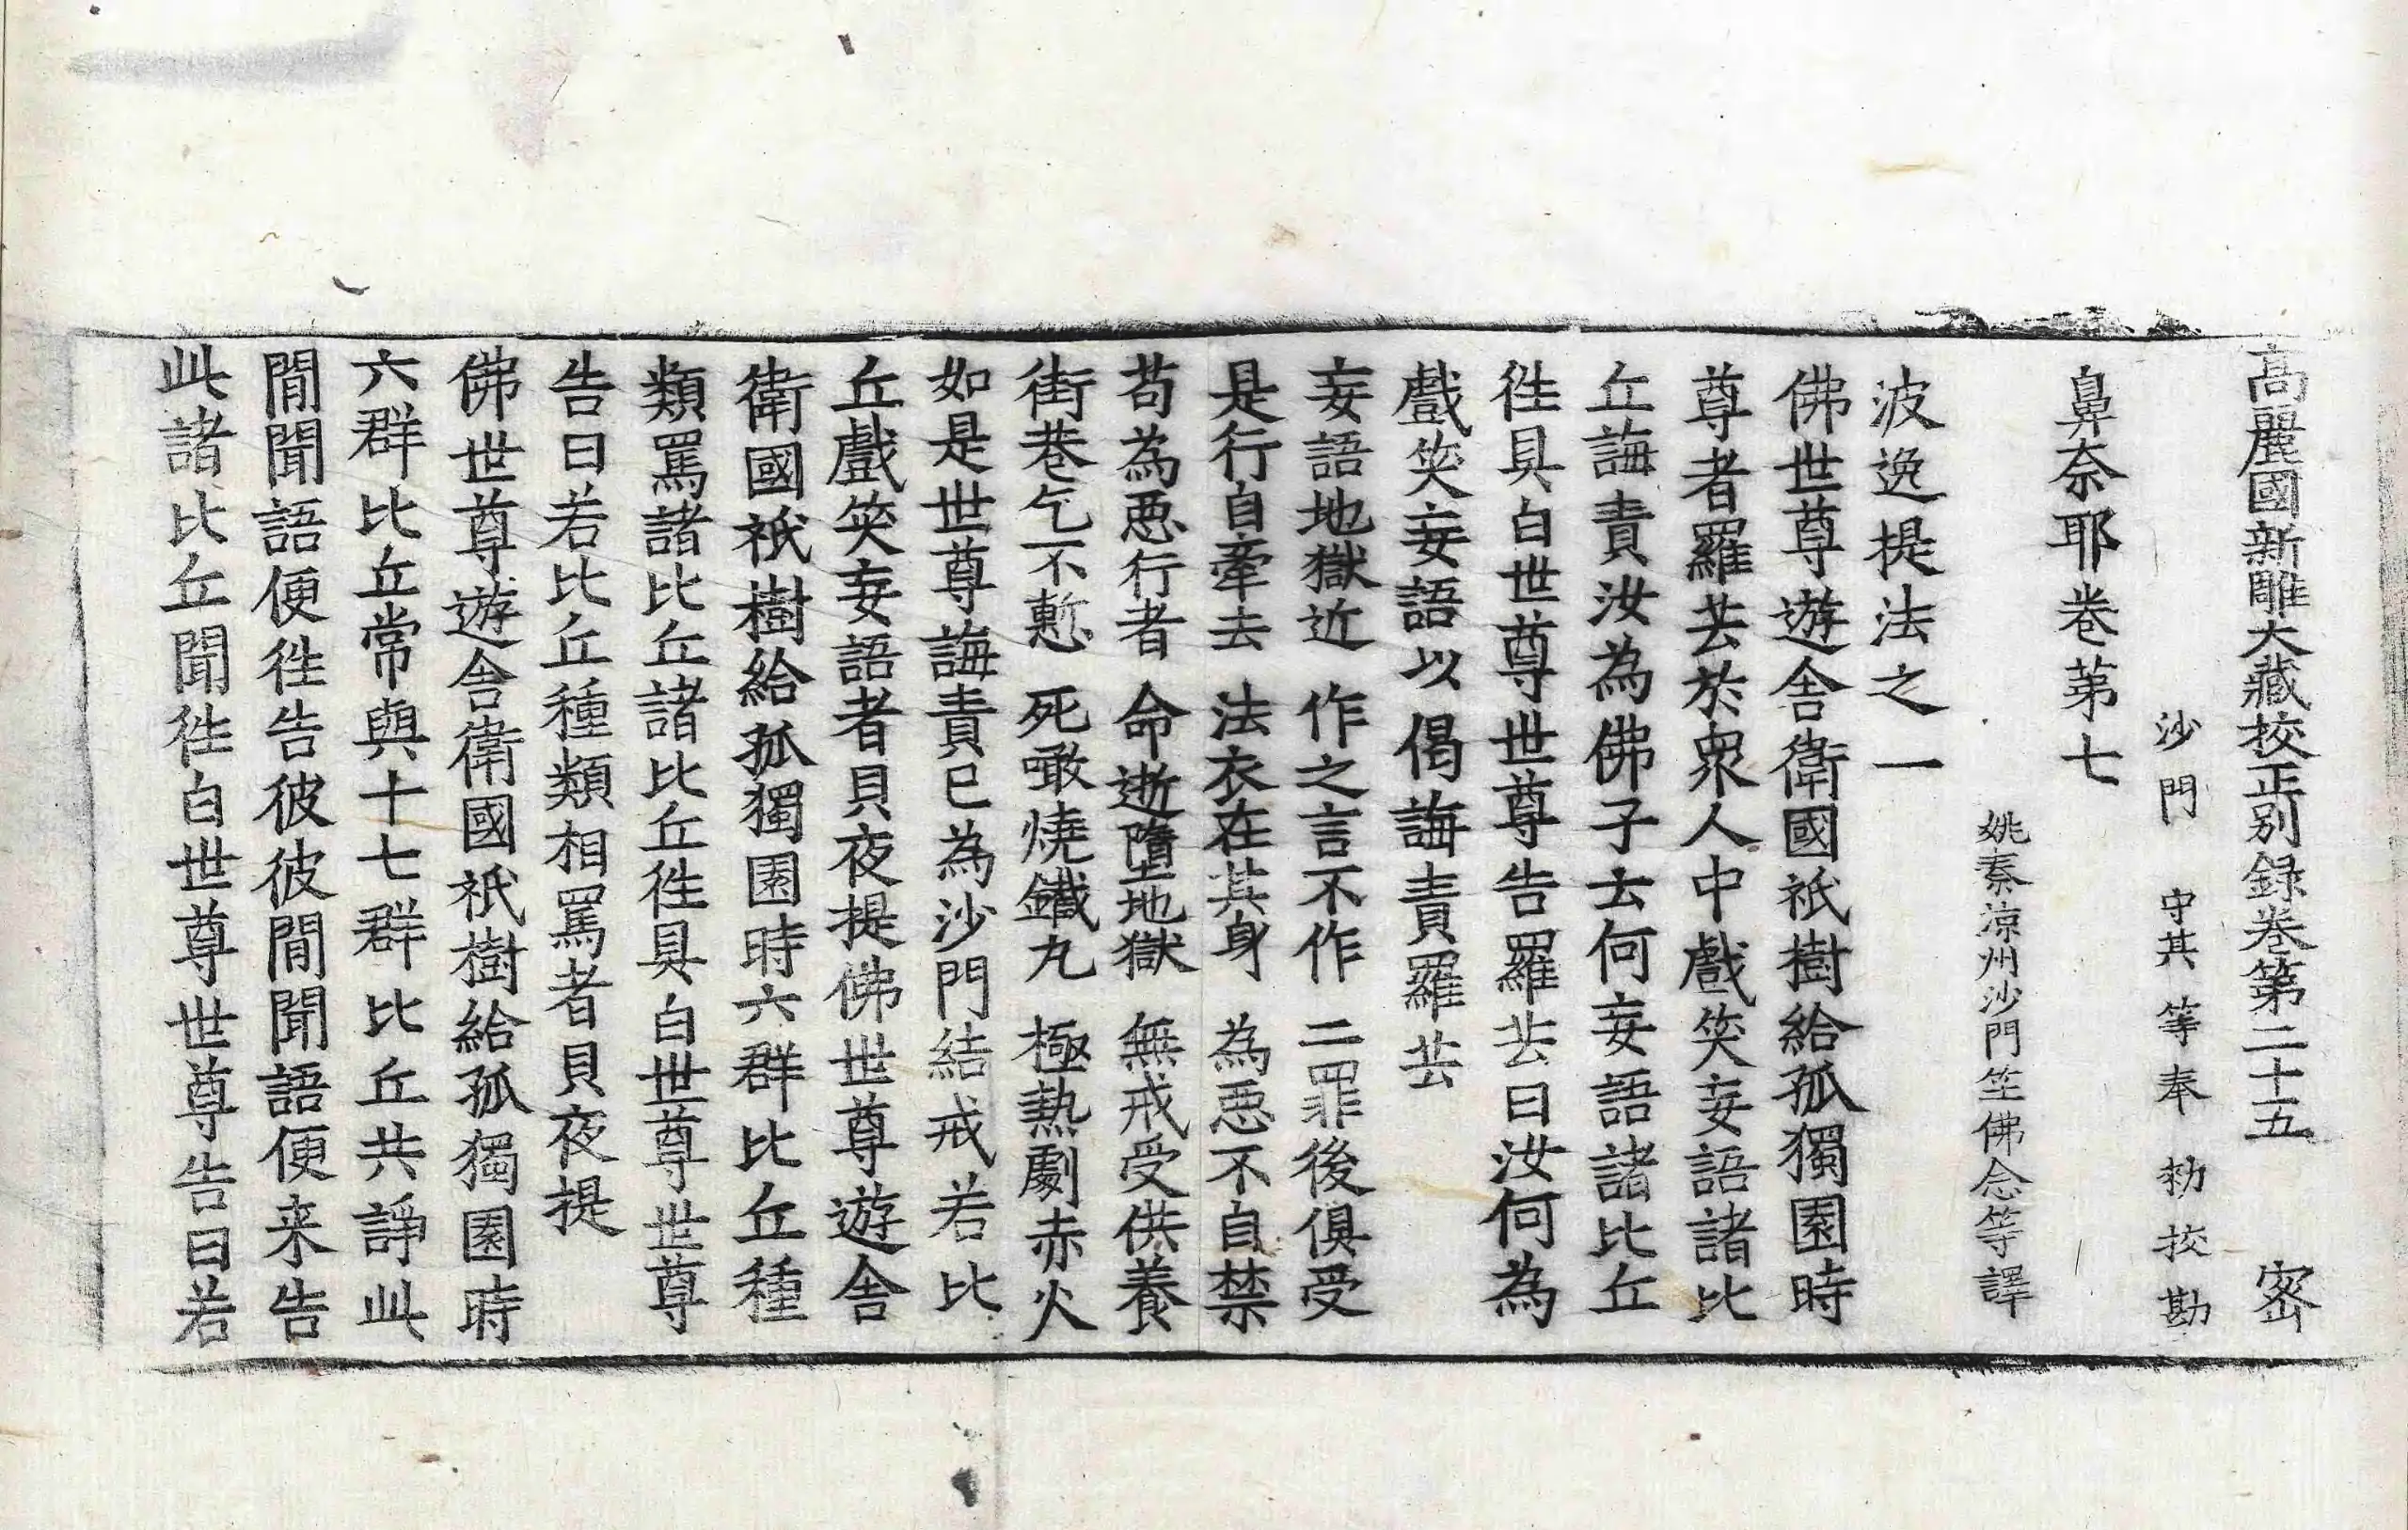 高麗國新雕大藏校正別録卷第二十五　密
沙門　守其等奉　勑挍勘
鼻奈耶卷第七
姚秦涼州沙門竺佛念等譯
波逸提法之一
佛世尊遊舍衛國祇樹給孤獨園時
尊者羅芸於衆人中戲笑妄語諸比
丘誨責汝為佛子云何妄語諸比丘
徃具白世尊世尊告羅芸曰汝何為
戲笑妄語以偈誨責羅芸
妄語地獄近　作之言不作　二罪後俱受
是行自牽去　法衣在其身　為惡不自禁
苟為惡行者　命逝墮地獄　無戒受供養
街巷乞不慙　死噉燒鐵丸　極熱劇赤火
如是世尊誨責已為沙門結戒若比
丘戲笑妄語者貝夜提佛世尊遊舍
衛國祇樹給孤獨園時六群比丘種
類罵諸比丘諸比丘徃具白世尊世尊
告曰若比丘種類相罵者貝夜提
佛世尊遊舍衛國祇樹給孤獨園時
六群比丘常與十七群比丘共諍此
閒聞語便徃告彼彼閒聞語便来告
此諸比丘聞徃白世尊世尊告曰若